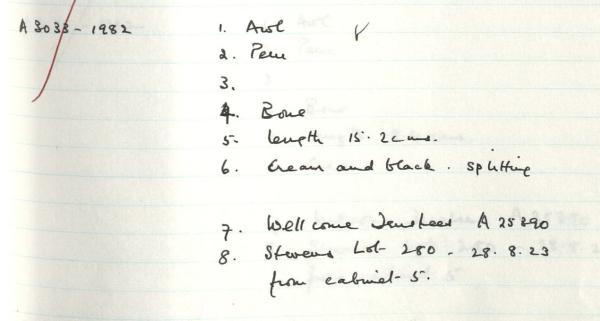 A 3033 - 1982
1. Awl
2. Peru
3.
4. Bone
5. length 15.2 cms.
6. Cream and black. splitting
7. Wellcome Trustees A 25390
8. Stevens Lot 280 - 28.8.23
from cabinet 5.